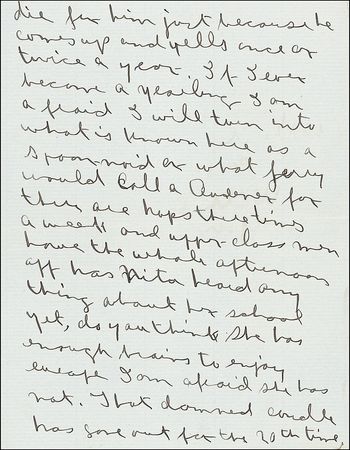 die for him just because he
comes up and yells once or
twice a year. If I ever
become a yearling I am
afraid I will turn into
what is known here as a
spoonoid or what
would call a for
there are hops three times
a week and upper class men
have the whole afternoon
off has Nita heard any
thing about her school
yet, do you think she has
enough brains to enjoy
I am afraid she has
not. That damned candle
has gone out for the 20th time,